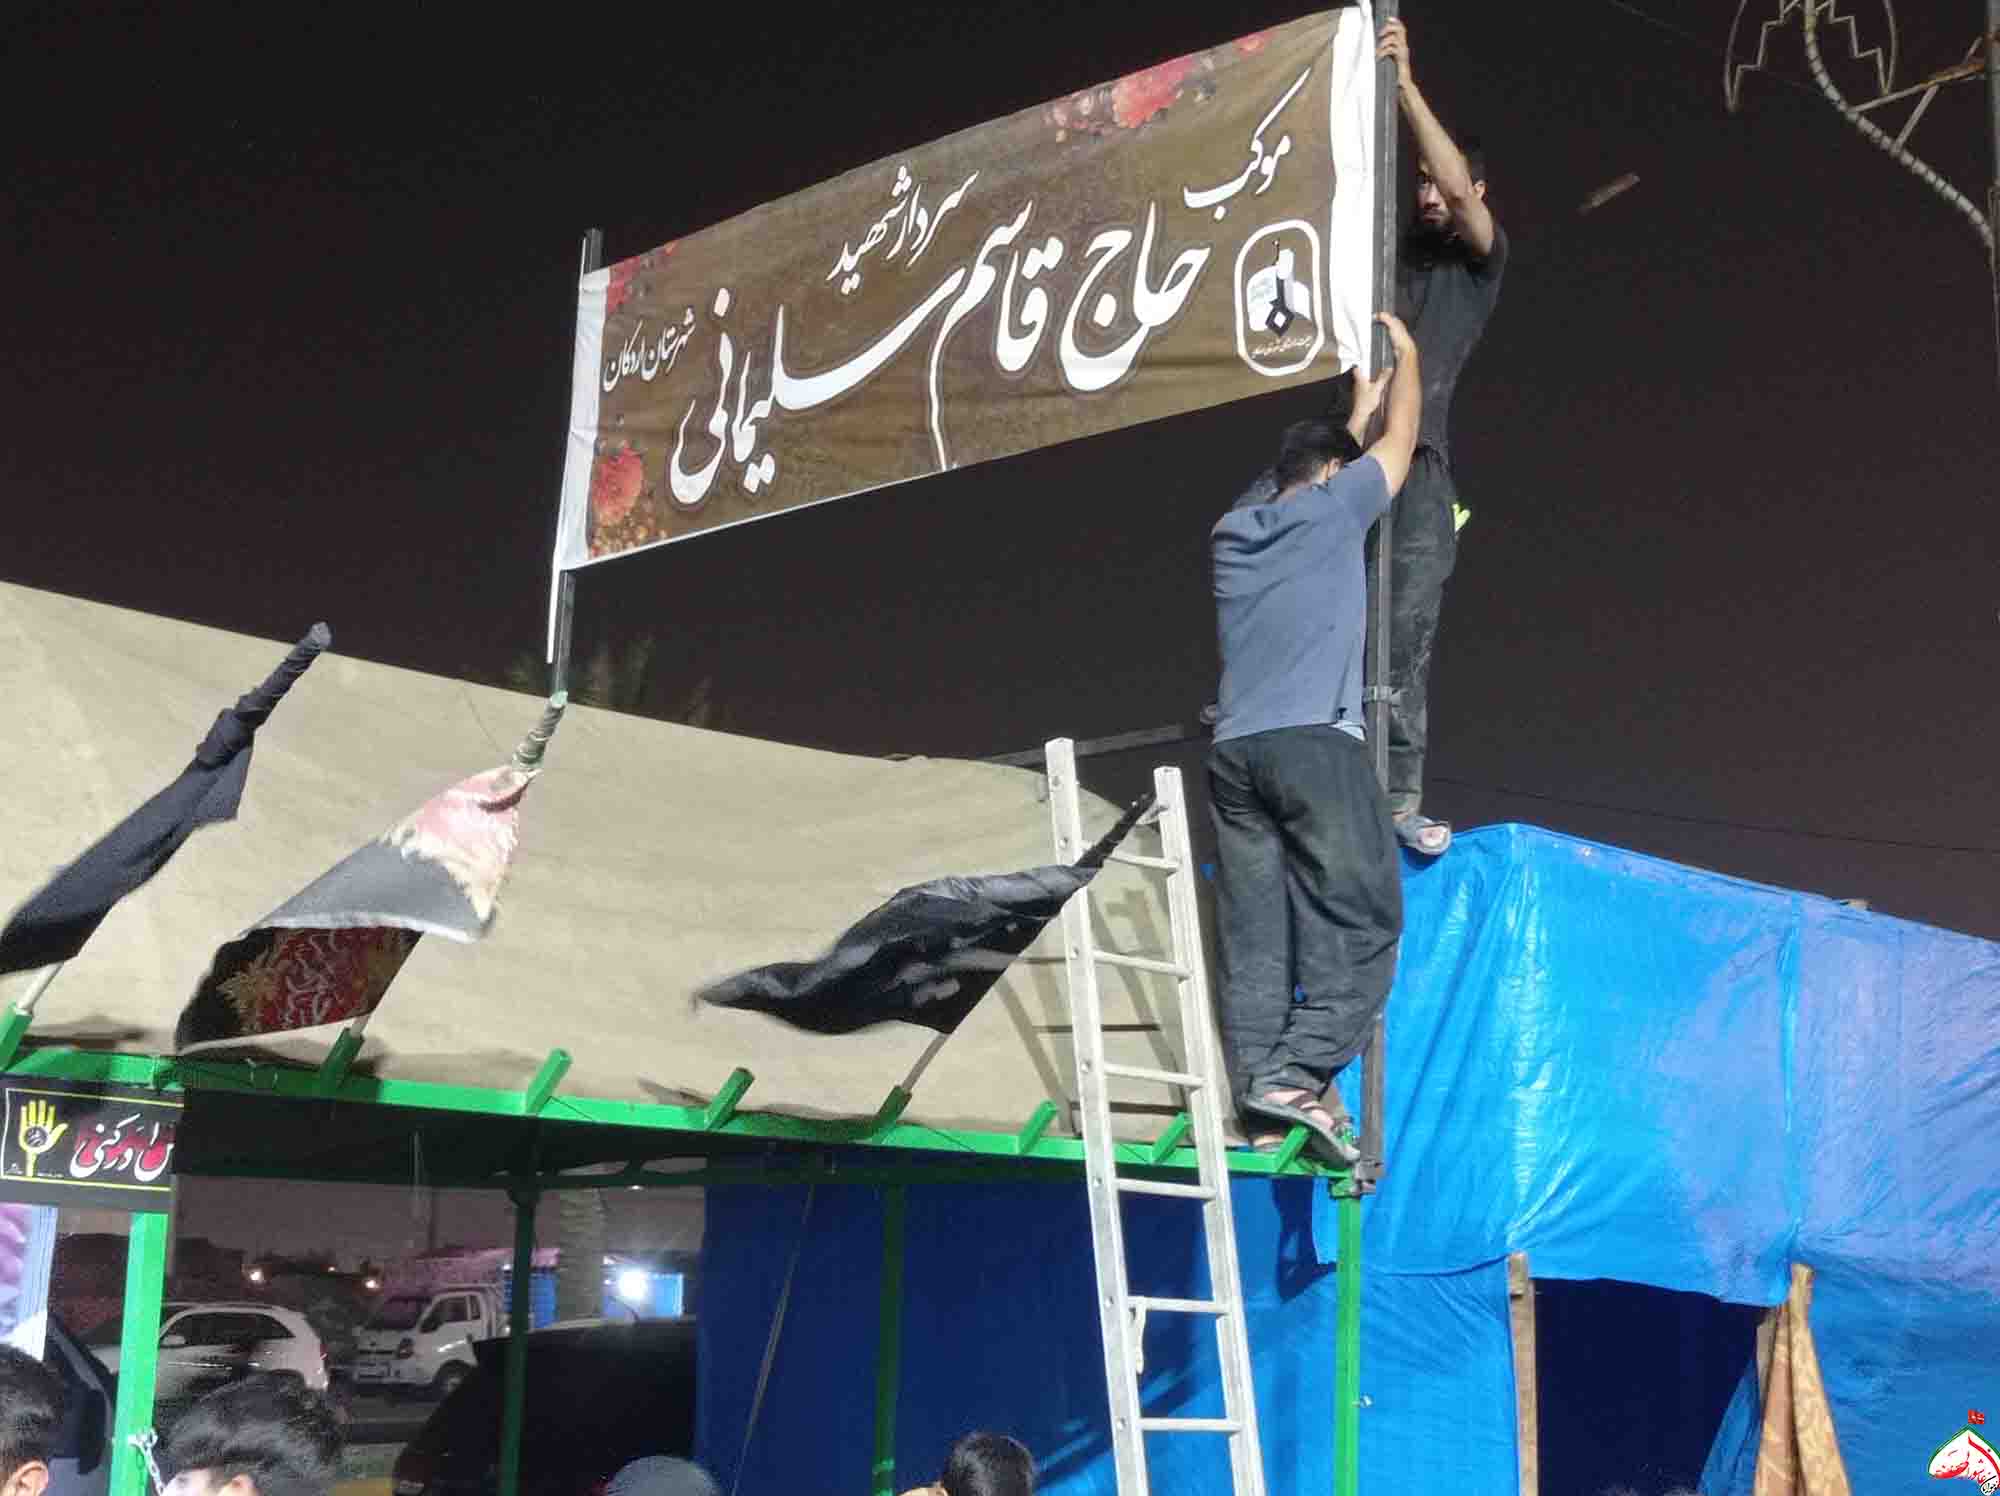 موکب
سردار شهید
حاج قاسم سلیمانی
شهرستان اردکان
ادرکنی